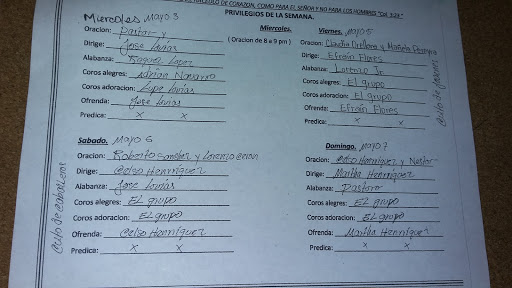 DE CORAZON, COMO PARA EL SEÑOR Y NO PARA LOS HOMBRES "Col. 3:23."
PRIVILEGIOS DE LA SEMANA.
Miercoles Mayo 3
Miercoles.
Oracion: Pastor y
( Oracion de 8 a 9 pm )
Dirige: Jose
Alabanza: Raquel Lopez
Coros alegres: Adrian Navarro
Coros adoracion: Lupe
Ofrenda: Jose
Predica: x x
Viernes. Mayo 5
Oracion: Claudia Orellana y
Dirige: Efrain Flores
Alabanza: Lorenzo Jr.
Coros alegres: El grupo
Coros adoracion: El grupo
Ofrenda: Efrain Flores
Predica: x x
Culto de
Sabado. Mayo 6
Oracion: Roberto Sanchez y Lorenzo
Dirige: Celso Henriquez
Alabanza: Jose
Coros alegres: EL grupo
Coros adoracion: EL grupo
Ofrenda: Celso Henriquez
Predica: x x
Culto de caballeros
Domingo. Mayo 7
Oracion: Celso Henriquez y Nestor
Dirige: Martha Henriquez
Alabanza: Pastora
Coros alegres: EL grupo
Coros adoracion: EL grupo
Ofrenda: Martha Henriquez
Predica: x x